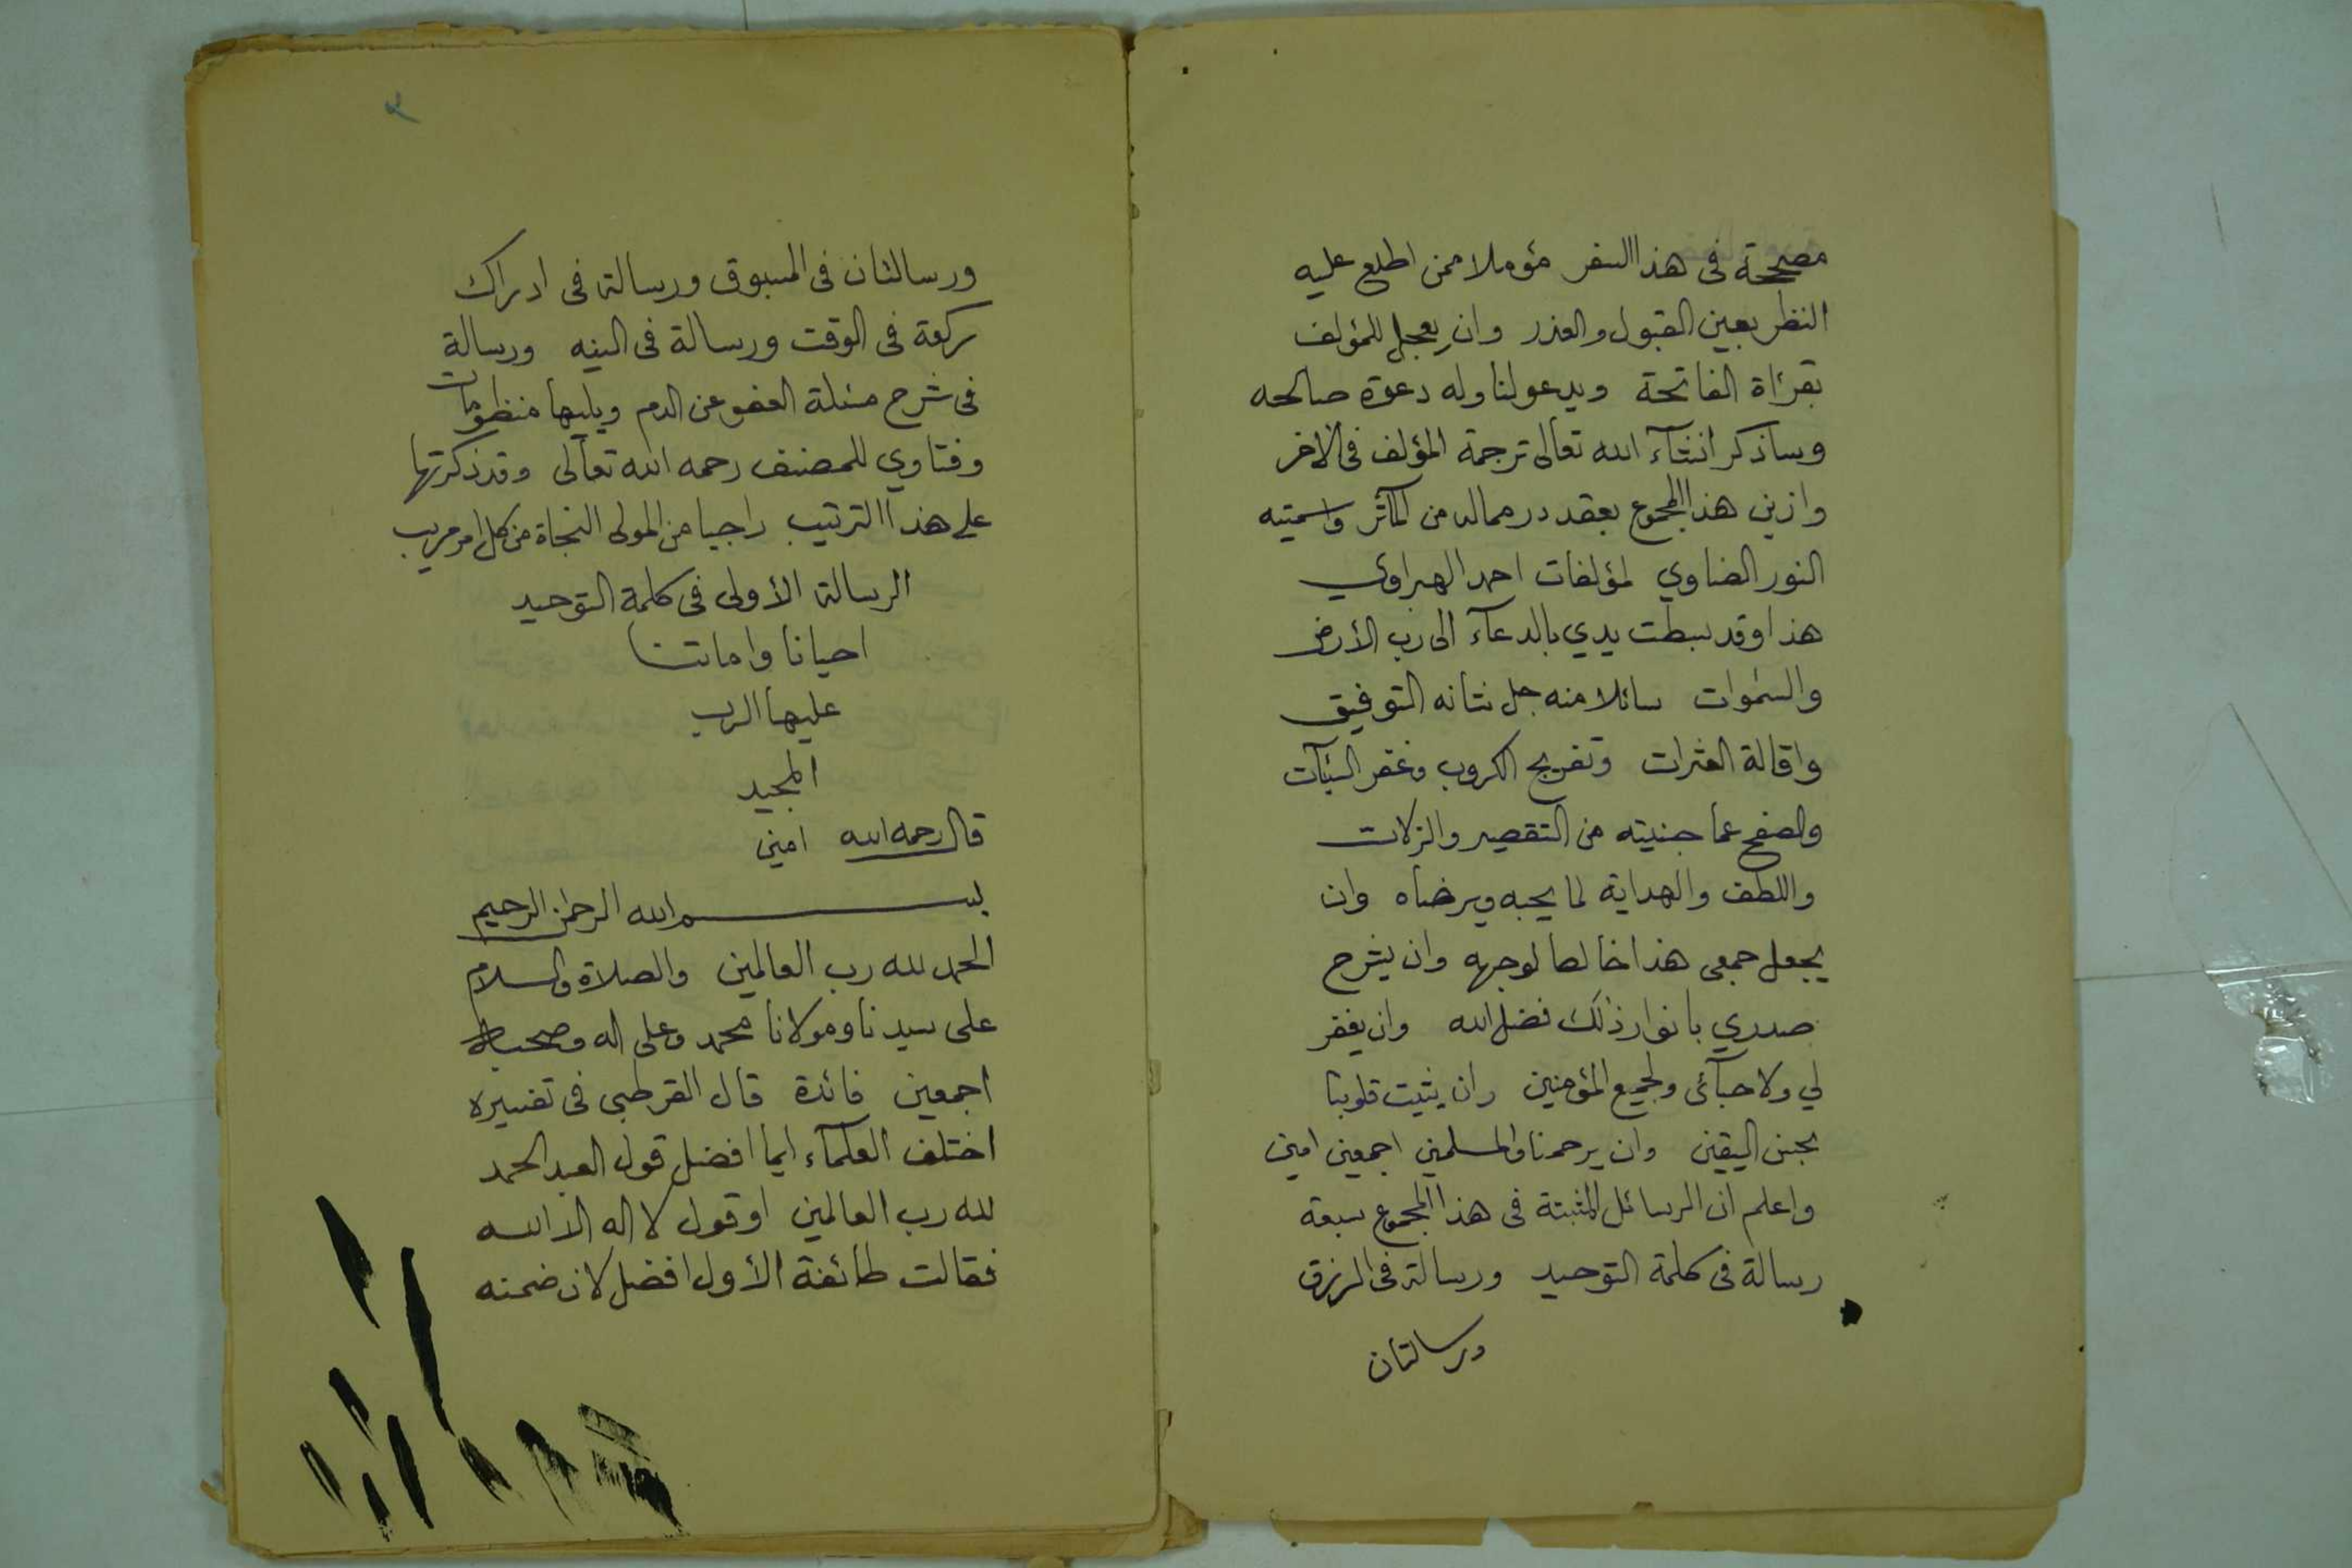 مصححة فى هذا السفر مؤملا ممن اطلع عليه
النظر بعين القبول والعذر وان يعجل للمؤلف
بقرأة الفاتحة ويدعو لنا وله دعوة صالحه
وساذكر انشآء الله تعالى ترجمة المؤلف فى الآخر
وازين هذا المجموع بعقد در مماله من المآثر واسميته
النور الضاوي لمؤلفات احمد الهبراوي
هذا وقد بسطت يدي بالدعآء الى رب الأرض
والسموات سائلا منه جل شانه التوفيق
واقالة العثرات وتفريج الكروب وغفر السيآت
والصفح عما جنيته من التقصير والزلات
واللطف والهداية لما يحبه ويرضاه وان
يجعل جمعى هذا خالصا لوجهه وان يشرح
صدري بانوار ذلك فضل الله وان يغفر
لي ولاحبآئى ولجميع المؤمنين وان يثبت قلوبنا
اليقين وان يرحمنا والمسلمين اجمعين امين
واعلم ان الرسائل المثبتة فى هذا المجموع سبعة
رسالة فى كلمة التوحيد ورسالة فى الرزق
ورسالتان
٢
ورسالتان فى المسبوق ورسالة فى ادراك
ركعة فى الوقت ورسالة فى النيه ورسالة
فى شرح مسئلة العفو عن الدم ويليها منظومات
وفتاوي للمصنف رحمه الله تعالى وقد ذكرتها
على هذا الترتيب راجيا من المولى النجاة من كل امر مريب
الرسالة الأولى فى كلمة التوحيد
احيانا واماتنا
عليها الرب
المجيد
قال رحمه الله امين
بسم الله الرحمن الرحيم
الحمد لله رب العالمين والصلاة والسلام
على سيدنا ومولانا محمد وعلى اله وصحبه
اجمعين فائدة قال القرطبى فى تفسيره
اختلف العلمآء ايما افضل قول العبد الحمد
لله رب العالمين او قول لا اله الا الله
فقالت طائفة الأول افضل لان ضمنه